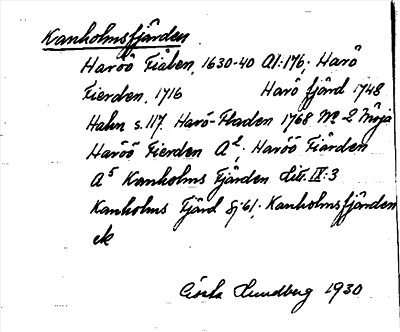 Kanholmsfjärden
Haröö Fiälen, 1630-40 A1:176; Harö
Fierden, 1716 Harö fjärd 1748
Hahn s. 117. Harö-Fladen 1768 Nº 2 Möja
Haröö Fierden A²; Haröö Fiärden
A⁵ Kanholms Fjärden Lit. IX:3
Kanholms Fjärd Sj:61; Kanholmsfjärden
ek
Gösta Lundberg 1930